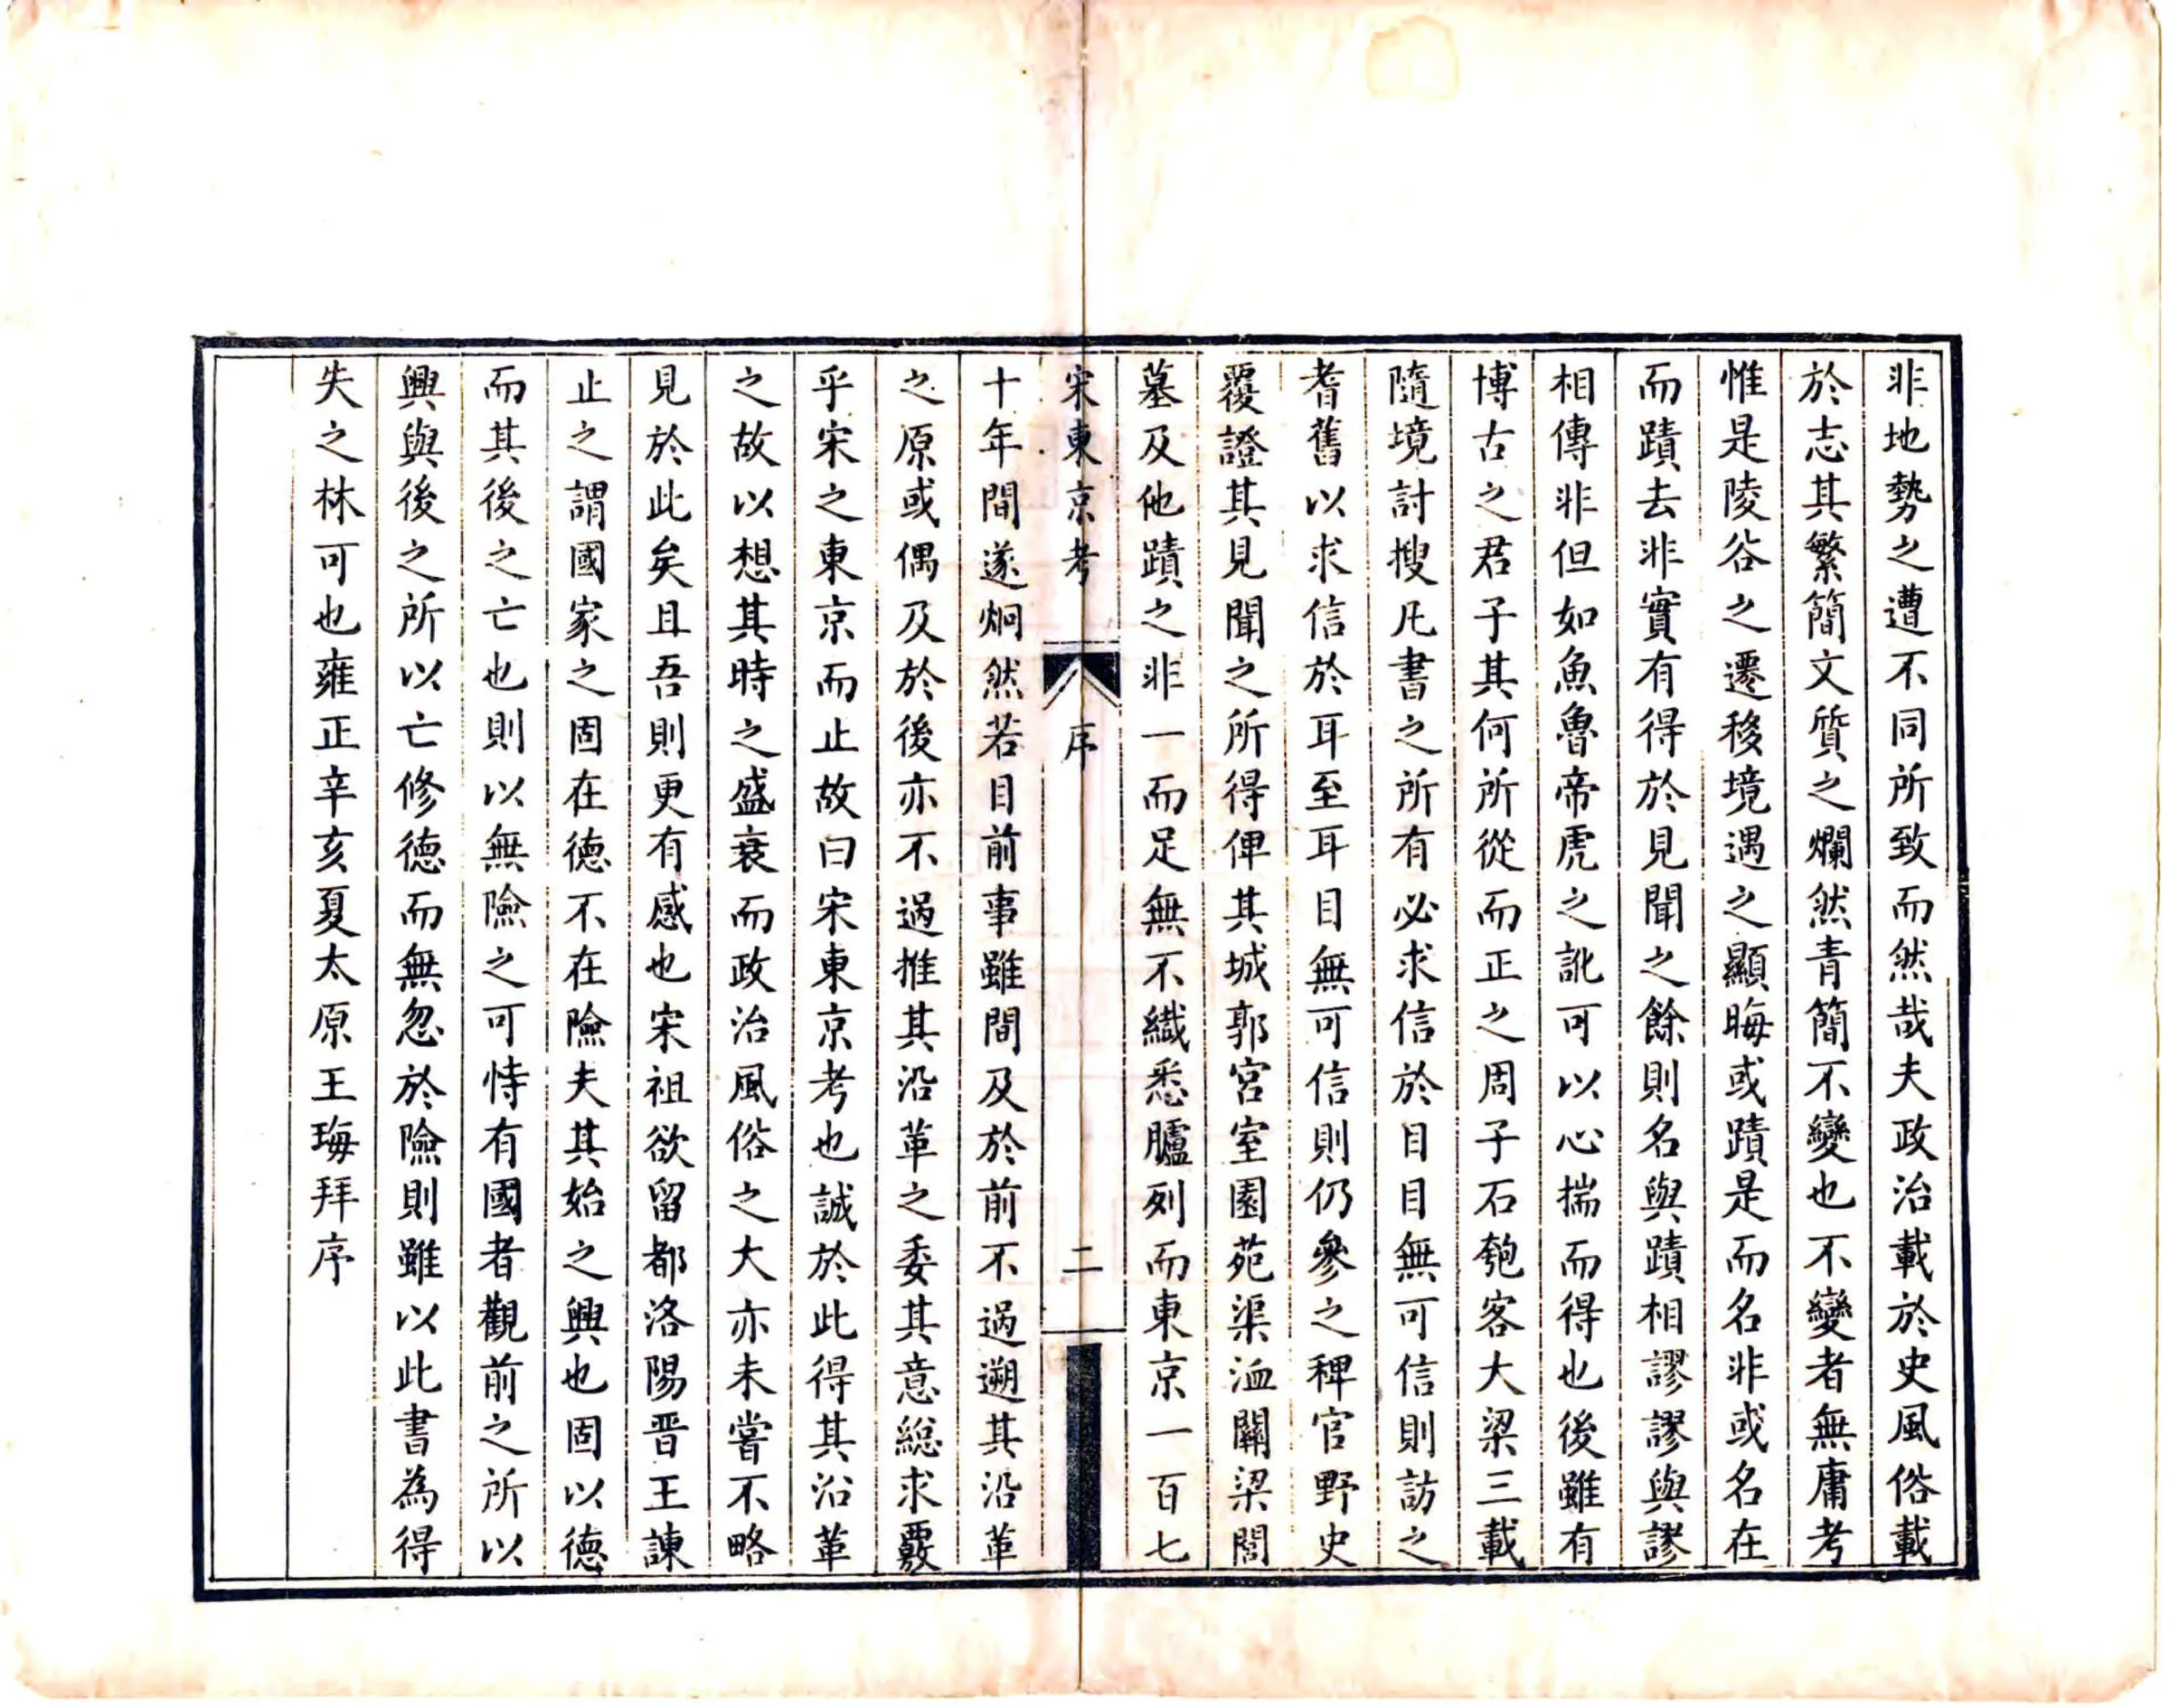 非地勢之遭不同所致而然哉夫政治載於史風俗載
於志其繁簡文質之爛然青簡不變也不變者無庸考
惟是陵谷之遷移境遇之顯晦或蹟是而名非或名在
而蹟去非實有得於見聞之餘則名與蹟相謬謬與謬
相傳非但如魚魯帝虎之訛可以心揣而得也後雖有
博古之君子其何所從而正之周子石匏客大梁三載
隨境討搜凡書之所有必求信於目目無可信則訪之
耆舊以求信於耳至耳目無可信則仍參之稗官野史
覆證其見聞之所得俾其城郭宮室園苑渠洫關梁閭
墓及他蹟之非一而足無不纖悉臚列而東京一百七
宋東京考 序 二
十年間遂炯然若目前事雖間及於前不過遡其沿革
之原或偶及於後亦不過推其沿革之委其意總求覈
乎宋之東京而止故曰宋東京考也誠於此得其沿革
之故以想其時之盛衰而政治風俗之大亦未嘗不略
見於此矣且吾則更有感也宋祖欲留都洛陽晋王諫
止之謂國家之固在德不在險夫其始之興也固以德
而其後之亡也則以無險之可恃有國者觀前之所以
興與後之所以亡修德而無忽於險則雖以此書為得
失之林可也雍正辛亥夏太原王珻拜序